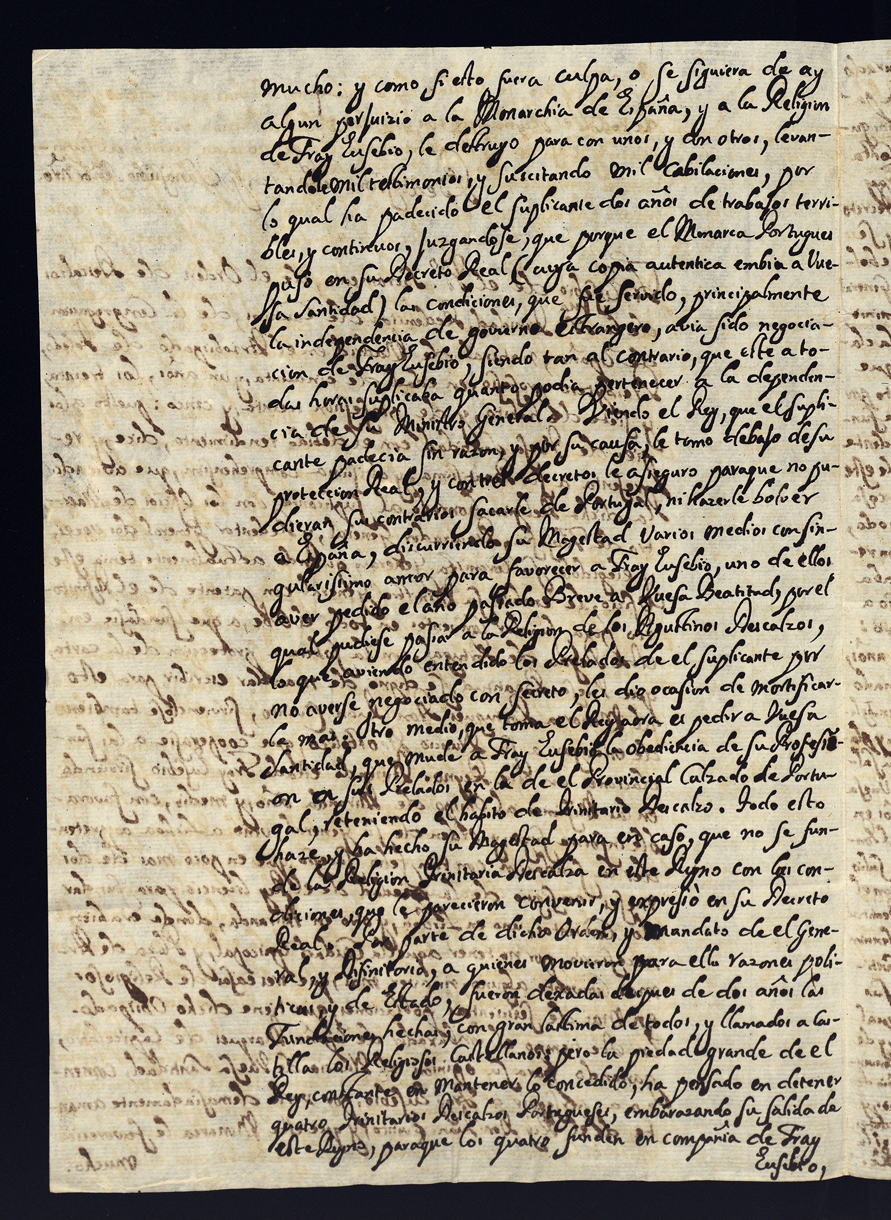 mucho: y como si esto fuera culpa, o se siguiera de ay
algun perjuizio a la Monarchia de España, y a la Religion
de Fray Eusebio, le destruyo para con unos, y con otros, levan-
tandole mil testimonios, y suscitando mil cabilaciones, por
lo qual ha padecido el suplicante dos años de trabajos terri-
bles, y continuos, juzgandose, que porque el Monarca Portugues
puso en su Decreto Real (cuya copia autentica embia a Vue-
ssa Santidad) las condiciones, que fue servido, principalmente
la independencia de governo estrangero, avia sido negocia-
cion de Fray Eusebio, siendo tan al contrario, que este a to-
das horas suplicaba quanto podia pertenecer a la dependen-
cia de su Ministro General. Viendo el Rey, que el supli-
cante padecia sin razon, y por su causa, le tomo debajo de su
proteccion Real, y con tres decretos le asseguro paraque no pu-
dieran sus contrarios sacarle de Portugal, ni hazerle bolver
a España, discurriendo su Magestad varios medios con sin-
gularissimo amor para favorecer a Fray Eusebio, uno de ellos
aver pedido el año passado Breve a Vuesa Beatitud, por el
qual pudiese passar a la Religion de los Agustinos Descalzos,
lo que aviendo entendido los Prelados de el suplicante por
no averse negociado con secreto, les dio ocasion de mortificar-
le mas. Otro medio, que toma el Rey aora es pedir a Vuesa
Santidad, que mude a Fray Eusebio la obediencia de su Profesi-
on en sus Prelados en la de el Provincial Calzado de Portu-
gal, reteniendo el habito de Trinitario Descalzo. Todo esto
haze, y ha hecho su Magestad para en caso, que no se fun-
de la Religion Trinitaria Descalza en este Reyno con las con-
diciones, que le parecieron convenir, y expresò en su Decreto
Real. Por parte de dicha Orden, y mandato de el Gene-
ral, y Difinitorio, a quienes movieron para ello razones poli-
ticas, y de Estado, fueron dexadas despues de dos años las
Fundaciones hechas, con gran lastima de todos, y llamados a Cas-
tilla los Religiosos Castellanos; pero la piedad grande de el
Rey, constante en mantener lo concedido, ha pensado en detener
quatro Trinitarios Descalzos Portugueses, embarazando su salida de
este Reyno, paraque los quatro funden en compañia de Fray
Eusebio,